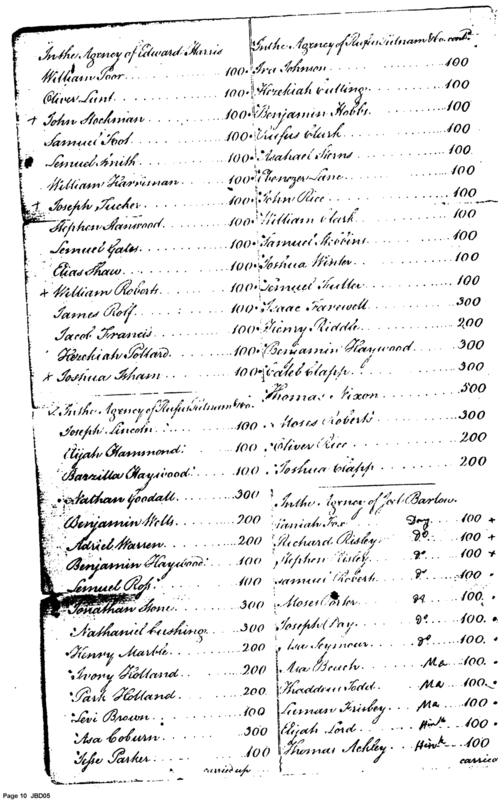 In the Agency of Edward Harris
William Poor 100
Oliver Lunt 100
+ John Stockman 100
Samuel Foot 100
Lemuel Smith 100
William Harriman 100
+ Joseph Tucker 100
Stephen Stanwood 100
Lemuel Gates 100
Elias Shaw 100
+ William Roberts 100
James Rolf 100
Jacob Francis 100
Hezekiah Pollard 100
x Joshua Isham 100
In the Agency of Rufus Putnam &co.
Joseph Lincoln 100
Elijah Hammond 100
Barzilla Haywood 100
Nathan Goodall 300
Benjamin Wells 200
Adriel Warren 200
Benjamin Haywood 100
Lemuel Ross 100
Jonathan Stone 300
Nathaniel Cushing 300
Henry Marble 200
Ivory Holland 200
Park Holland 200
Levi Brown 100
Asa Coburn 300
Jesse Parker 100
carried up
In the Agency of Rufus Putnam &co. contd.
Ira Johnson 100
Hezekiah Cutting 100
Benjamin Hobbs 100
Rufus Clark 100
Asahael Sterns 100
Ebenezer Lane 100
John Rice 100
William Clark 100
Samuel Stebbins 100
Joshua Winter 100
Lemuel Fuller 100
Isaac Farewell 300
Henry Riddle 200
Benjamin Haywood 300
Caleb Clapp 300
Thomas Nixon 500
Moses Roberts 300
Oliver Rice 200
Joshua Clapp 200
In the Agency of Joel Barlow
Fox 100 +
Richard Risley do 100 +
Stephen Risley do 100 +
Samuel Roberts do 100
Moses Porter do 100
Joseph Day do 100
Asa Seymour do 100
Asa Beach Ma 100
Thaddeus Todd Ma 100
Leeman Frisbey Ma 100
Elijah Lord 100
Thomas Ashley 100
carried
Page 10 JBD05